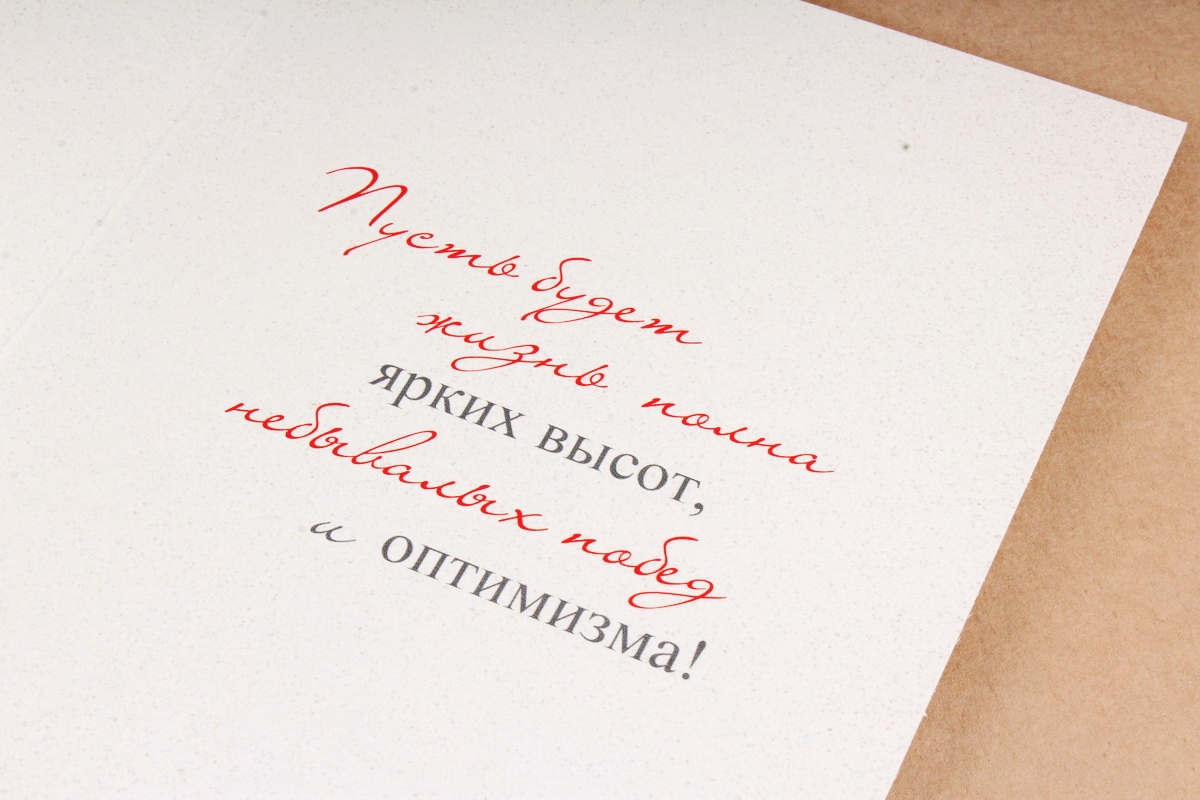 Пусть будет
жизнь полна
ярких высот,
небывалых побед
и оптимизма!